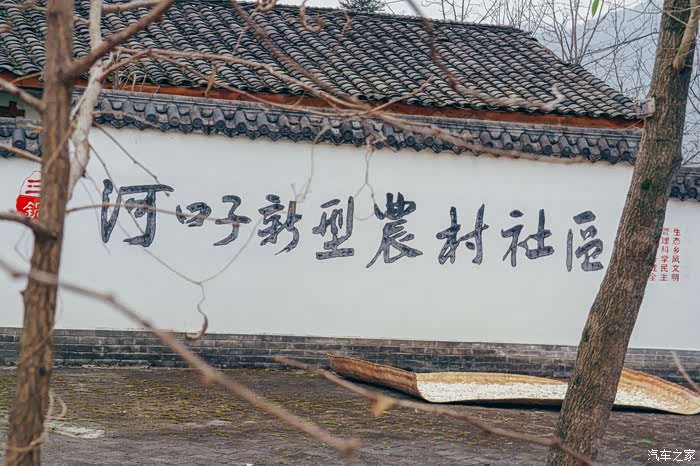 三
锅
河口子新型农村社区
生态乡风文明
管理科学民主
汽车之家